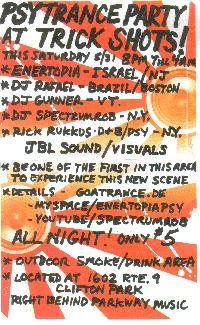 PSYTRANCE PARTY
AT TRICK SHOTS!
THIS SATURDAY 5/31 8PM TILL 4AM
* ENERTOPIA - ISRAEL/NJ
* DJ RAFAEL - BRAZIL/BOSTON
* DJ GUNNER - VT.
* DJ SPECTRUMROB - N.Y.
* RICK RUKKUS - D+B/PSY - N.Y.
JBL SOUND/VISUALS
* BE ONE OF THE FIRST IN THIS AREA
TO EXPERIENCE THIS NEW SCENE
* DETAILS - GOATRANCE.DE
- MYSPACE/ENERTOPIAPSY
- YOUTUBE/SPECTRUMROB
ALL NIGHT! ONLY $5
* OUTDOOR SMOKE/DRINK AREA
* LOCATED AT 1602 RTE. 9
CLIFTON PARK
RIGHT BEHIND PARKWAY MUSIC